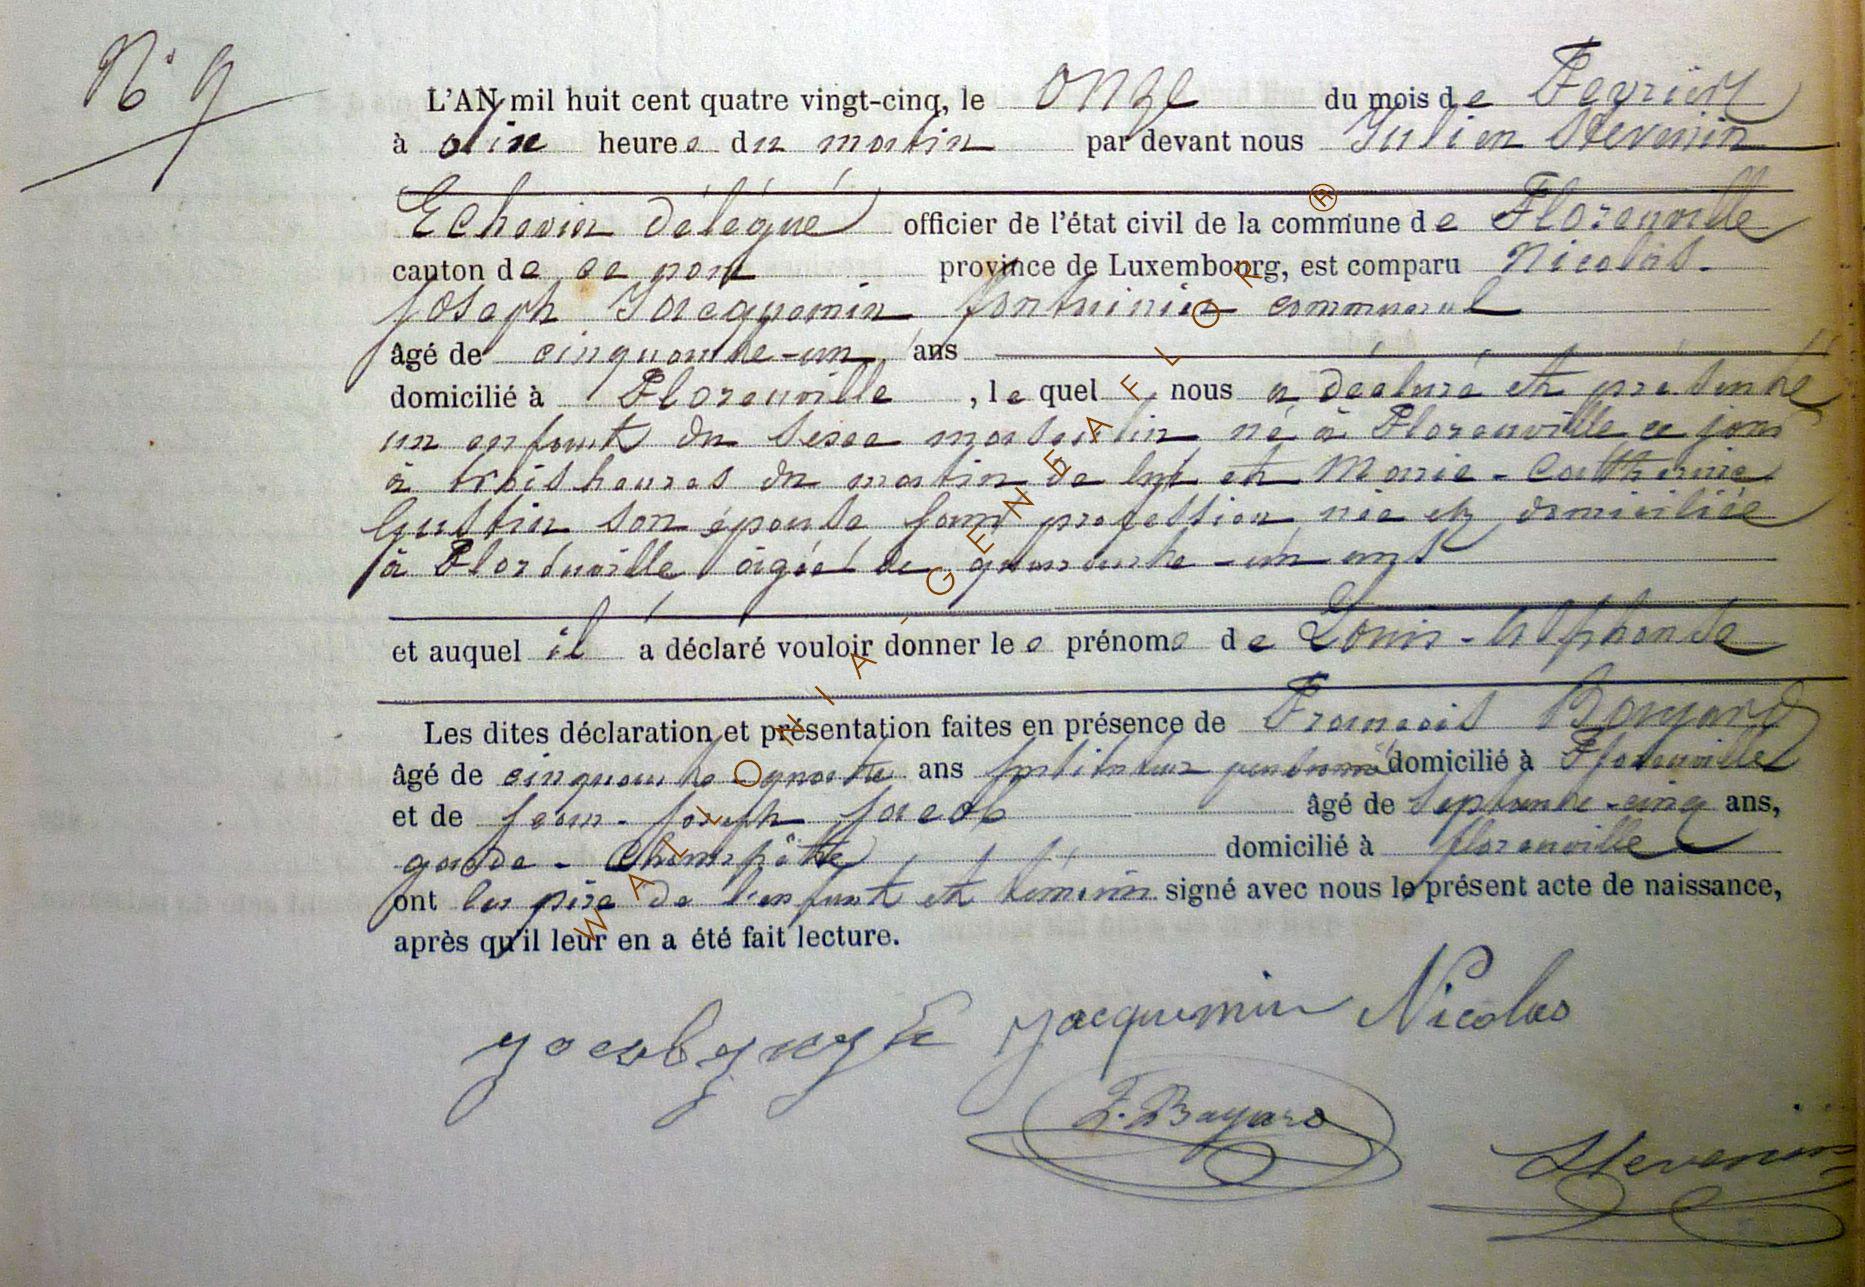 N° 9
L'AN mil huit cent quatre vingt-cinq, le onze du mois de Fevrier
à dix heures du matin par devant nous Julien Stevenin
Echevin délégué officier de l'état civil de la commune de Florenville
canton de ce nom province de Luxembourg, est comparu Nicolas-
Joseph Jacquemin fontainier communal
âgé de cinquante-un ans
domicilié à Florenville, lequel nous a déclaré et présenté
un enfant du sexe masculin né à Florenville ce jour
à trois heures du matin de lui et Marie-Catherine
Gustin son épouse sans profession née et domiciliée
à Florenville âgée de quarante-un ans
et auquel il a déclaré vouloir donner les prénoms de Louis-Alphonse
Les dites déclaration et présentation faites en présence de François Bayard
âgé de cinquante-quatre ans Instituteur pensionné domicilié à Florenville
et de Jean-Joseph Jacob âgé de septante-cinq ans,
garde-champêtre domicilié à florenville
ont les père de l'enfant et témoins signé avec nous le présent acte de naissance,
après qu'il leur en a été fait lecture.
Jacquemin Nicolas
F. Bayard
Stevenin
WALLONIA-GENEAFLOR ®